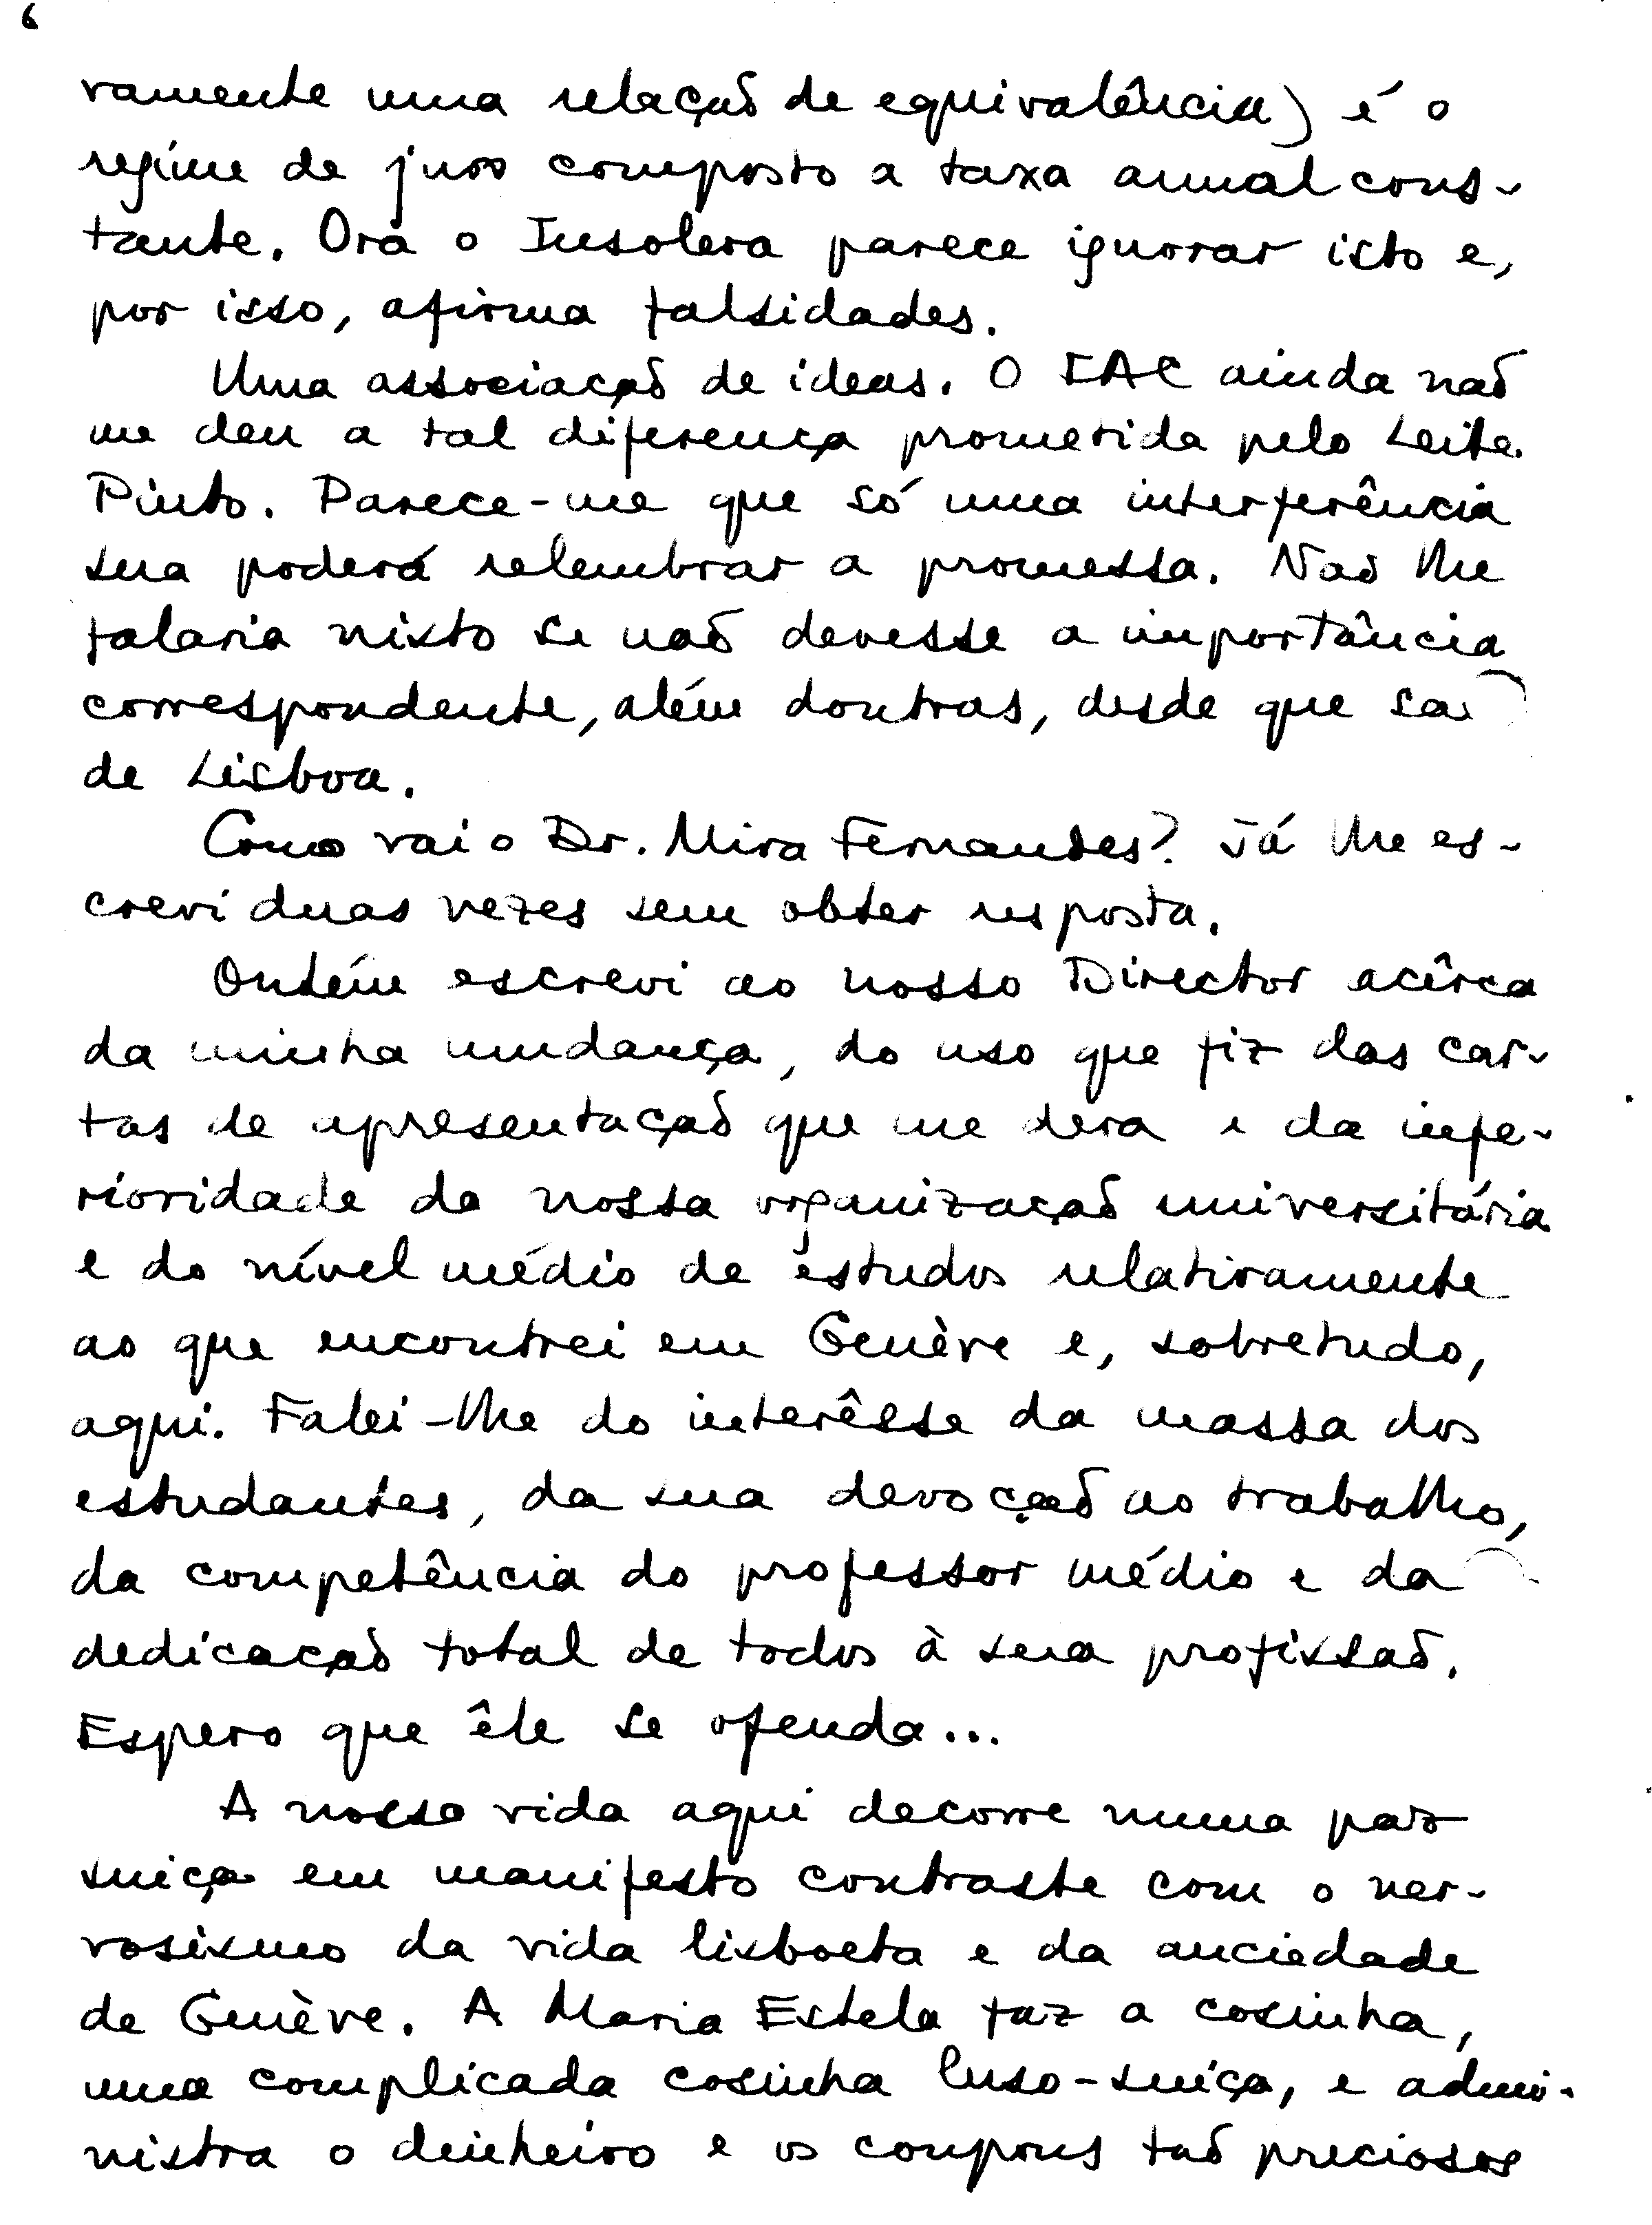 6
vamente uma relação de equivalência) é o
regíme de juro composto a taxa anual cons-
tante. Ora o Insolera parece ignorar isto e,
por isso, afirma falsidades.
Uma associação de ideas. O IAC ainda não
me deu a tal diferença prometida pelo Leite
Pinto. Parece-me que só uma interferência
sua poderá relembrar a promessa. Não lhe
falaria nisto se não devesse a importância
correspondente, além doutras, desde que saí
de Lisboa.
Como vai o Dr. Mira Fernandes? Já lhe es-
crevi duas vezes sem obter resposta.
Ontém escrevi ao nosso Director acêrca
da minha mudança, do uso que fiz das car-
tas de apresentação que me dera e da infe-
rioridade da nossa organização universitária
e do nível médio de estudos relativamente
ao que encontrei em Genève e, sobretudo,
aqui. Falei-lhe do interêsse da massa dos
estudantes, da sua devoção ao trabalho,
da competência do professor médio e da
dedicação total de todos à sua profissão.
Espero que êle se ofenda...
A nossa vida aqui decorre numa paz
suiça em manifesto contraste com o ner-
vosismo da vida lisboeta e da anciedade
de Genève. A Maria Estela faz a cosinha,
uma complicada cosinha luso-suiça, e admi-
nistra o dinheiro e os coupons tão preciosos